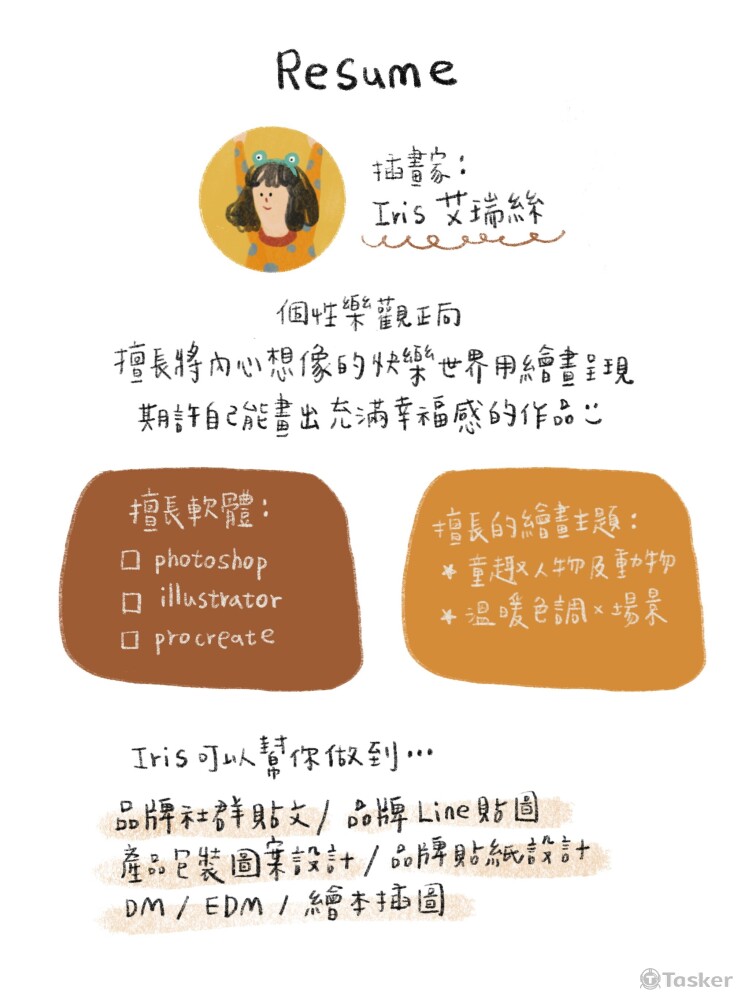 Resume
插畫家：
Iris 艾瑞絲
個性樂觀正向
擅長將內心想像的快樂世界用繪畫呈現
期許自己能畫出充滿幸福感的作品
擅長軟體：
photoshop
illustrator
procreate
擅長的繪畫主題：
★ 童趣×人物及動物
★ 溫暖色調×場景
Iris可以幫你做到…
品牌社群貼文/ 品牌Line貼圖
產品包裝圖案設計/品牌貼紙設計
DM / EDM / 繪本插圖
Tasker